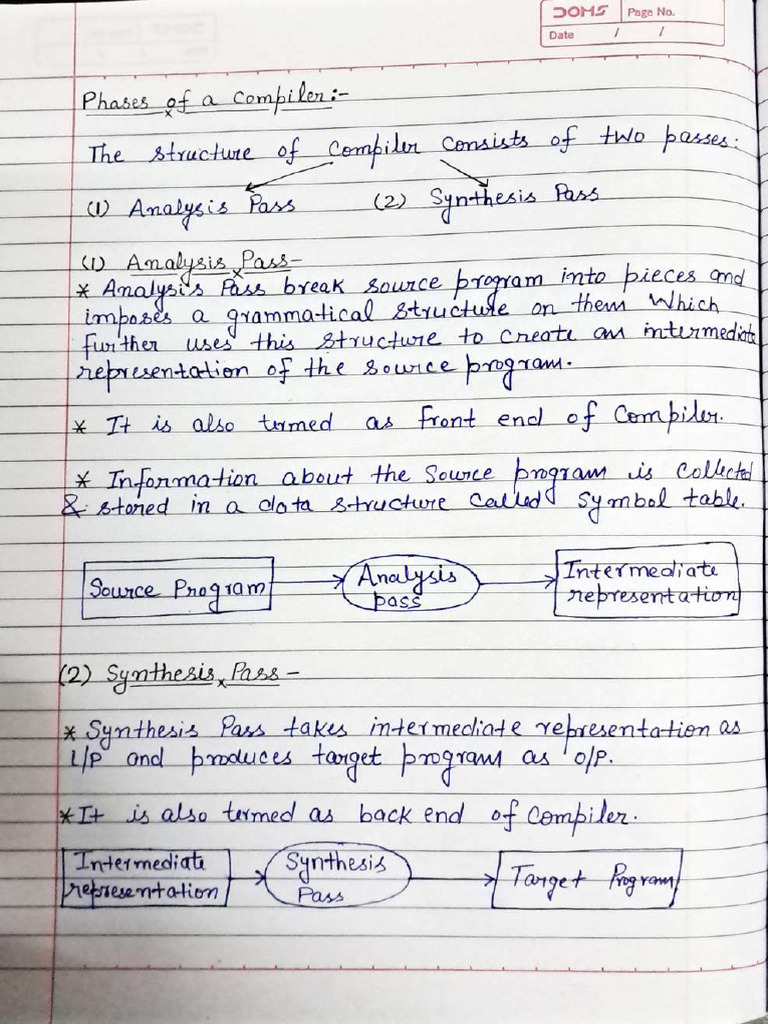 DOMS Page No.
Date / /
Phases of a Compiler:-
The structure of Compiler Consists of two passes:
(1) Analysis Pass (2) Synthesis Pass
(1) Analysis Pass-
* Analysis Pass break source program into pieces and
imposes a grammatical structure on them which
further uses this structure to create an intermediate
representation of the source program.
* It is also termed as front end of Compiler.
* Information about the Source program is Collected
& stored in a data structure Called Symbol table.
Source Program Analysis pass Intermediate representation
(2) Synthesis Pass -
* Synthesis Pass takes intermediate representation as
I/P and produces target program as O/P.
* It is also termed as back end of Compiler.
Intermediate representation Synthesis Pass Target Program